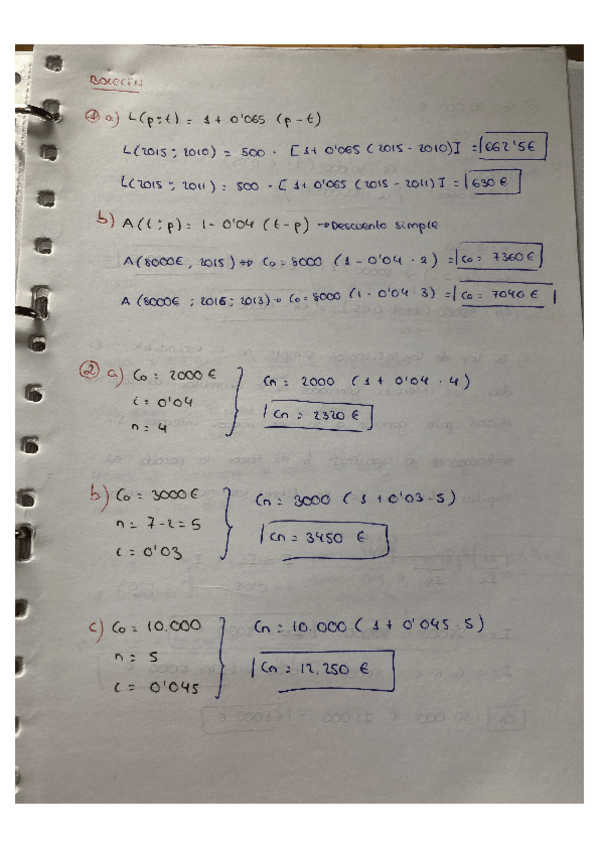 BOLETÍN
① a) L(p;t) = 1 + 0'065 (p-t)
L(2015; 2010) = 500 · [1 + 0'065 (2015 - 2010)] = 662'5€
L(2015; 2011) = 500 · [1 + 0'065 (2015 - 2011)] = 630 €
b) A(t;p) = 1 - 0'04 (t-p) → Descuento simple
A(8000€, 2015) ⇒ Co = 8000 (1 - 0'04 · 2) = Co = 7360€
A(8000€; 2016; 2013) = Co = 8000 (1 - 0'04 · 3) = Co = 7040 €
② a) Co = 2000 € Cn = 2000 (1 + 0'04 · 4)
i = 0'04 Cn = 2320 €
n = 4
b) Co = 3000 € Cn = 3000 (1 + 0'03 · 5)
n = 7-2 = 5 Cn = 3450 €
i = 0'03
c) Co = 10.000 Cn = 10.000 (1 + 0'045 · 5)
n = 5 Cn = 12.250 €
i = 0'045